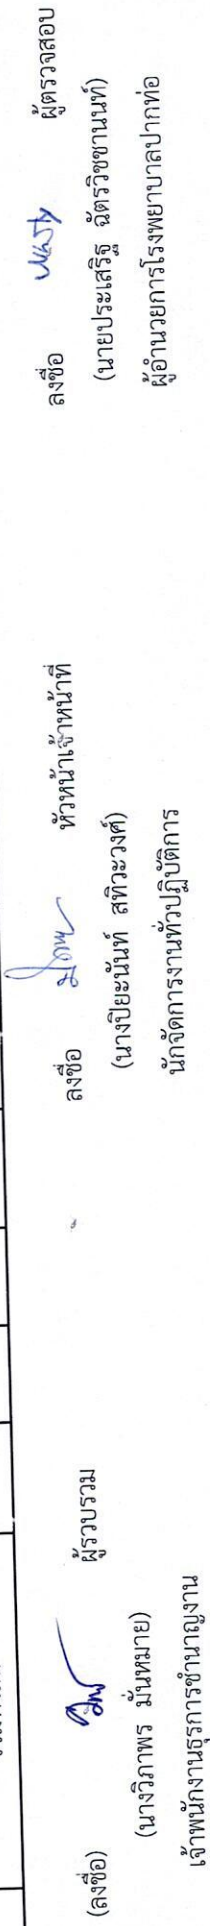 (ลงชื่อ) ผู้รวบรวม
(นางวิภาพร มั่นหมาย)
เจ้าพนักงานธุรการชำนาญงาน
ลงชื่อ หัวหน้าเจ้าหน้าที่
(นางปิยะนันท์ สทิวะวงศ์)
นักจัดการงานทั่วปฏิบัติการ
ลงชื่อ ผู้ตรวจสอบ
(นายประเสริฐ ฉัตรวิชชานนท์)
ผู้อำนวยการโรงพยาบาลปากท่อ